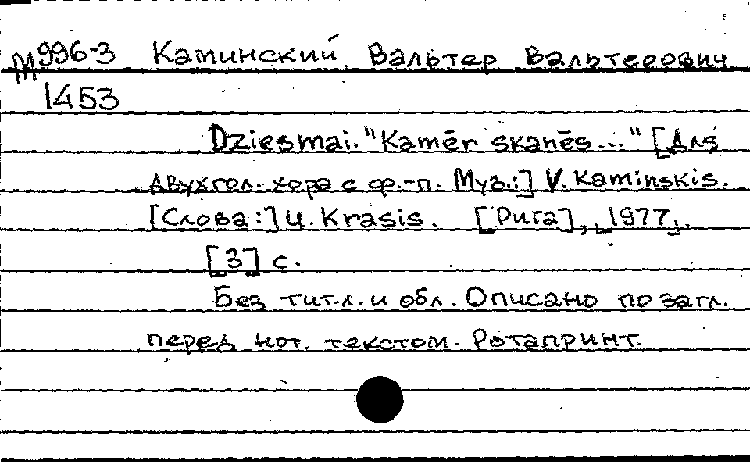 М996-3 Каминский Вальтер Вальтерович
1453
Dziesmai. "Kamēr skanēs..." [Для
двухгол. хора с ф.-п. Муз.:] V. Kaminskis.
[Слова:] U. Krasis. [Рига], [1977].
[3] с.
Без тит. л. и обл. Описано по загл.
перед нот. текстом. Ротапринт.